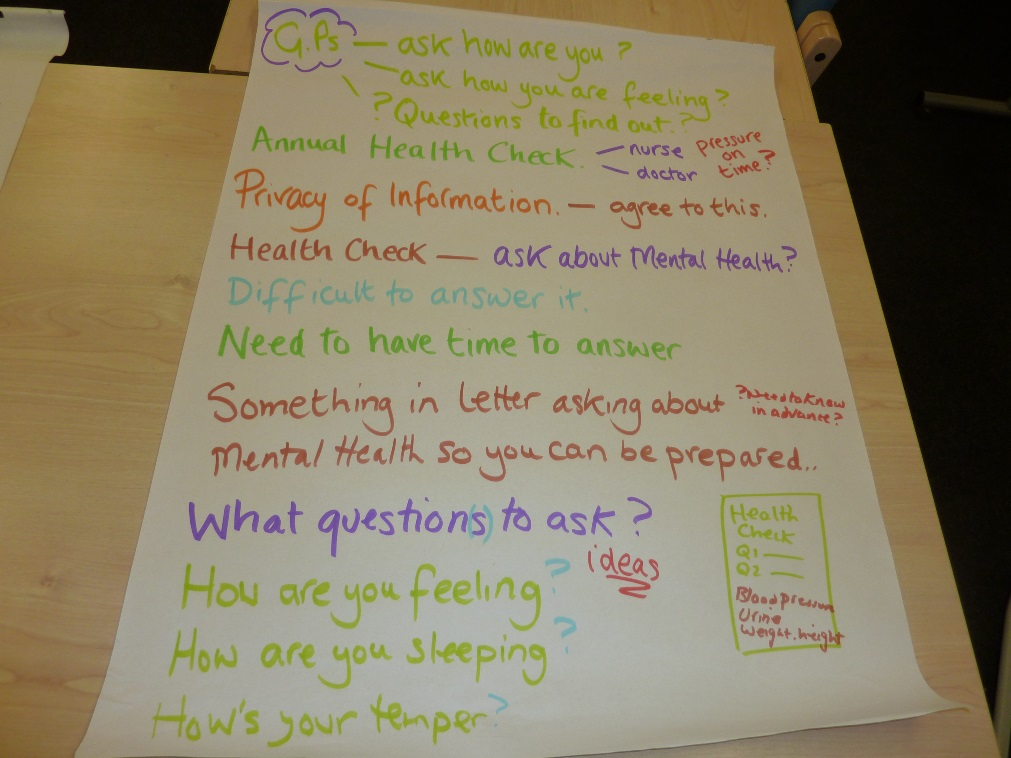 G.Ps — ask how are you?
— ask how you are feeling?
\ ?Questions to find out.?
Annual Health Check. — nurse
— doctor
pressure
on
time?
Privacy of Information. — agree to this.
Health Check — ask about Mental Health?
Difficult to answer it.
Need to have time to answer
Something in letter asking about
?Need to know
in advance?
Mental Health so you can be prepared..
What question(s) to ask?
ideas
How are you feeling?
How are you sleeping?
How's your temper?
Health
Check
Q1 —
Q2 —
Blood pressure
Urine
Weight.height